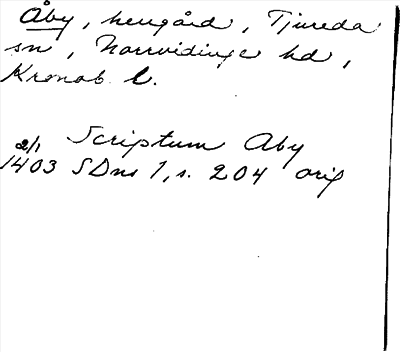 Åby, herrgård, Tjureda
sn, Norrvidinge hd,
Kronob. l.
Scriptum Aby
2/1
1403 SDns 1, s. 204 orig